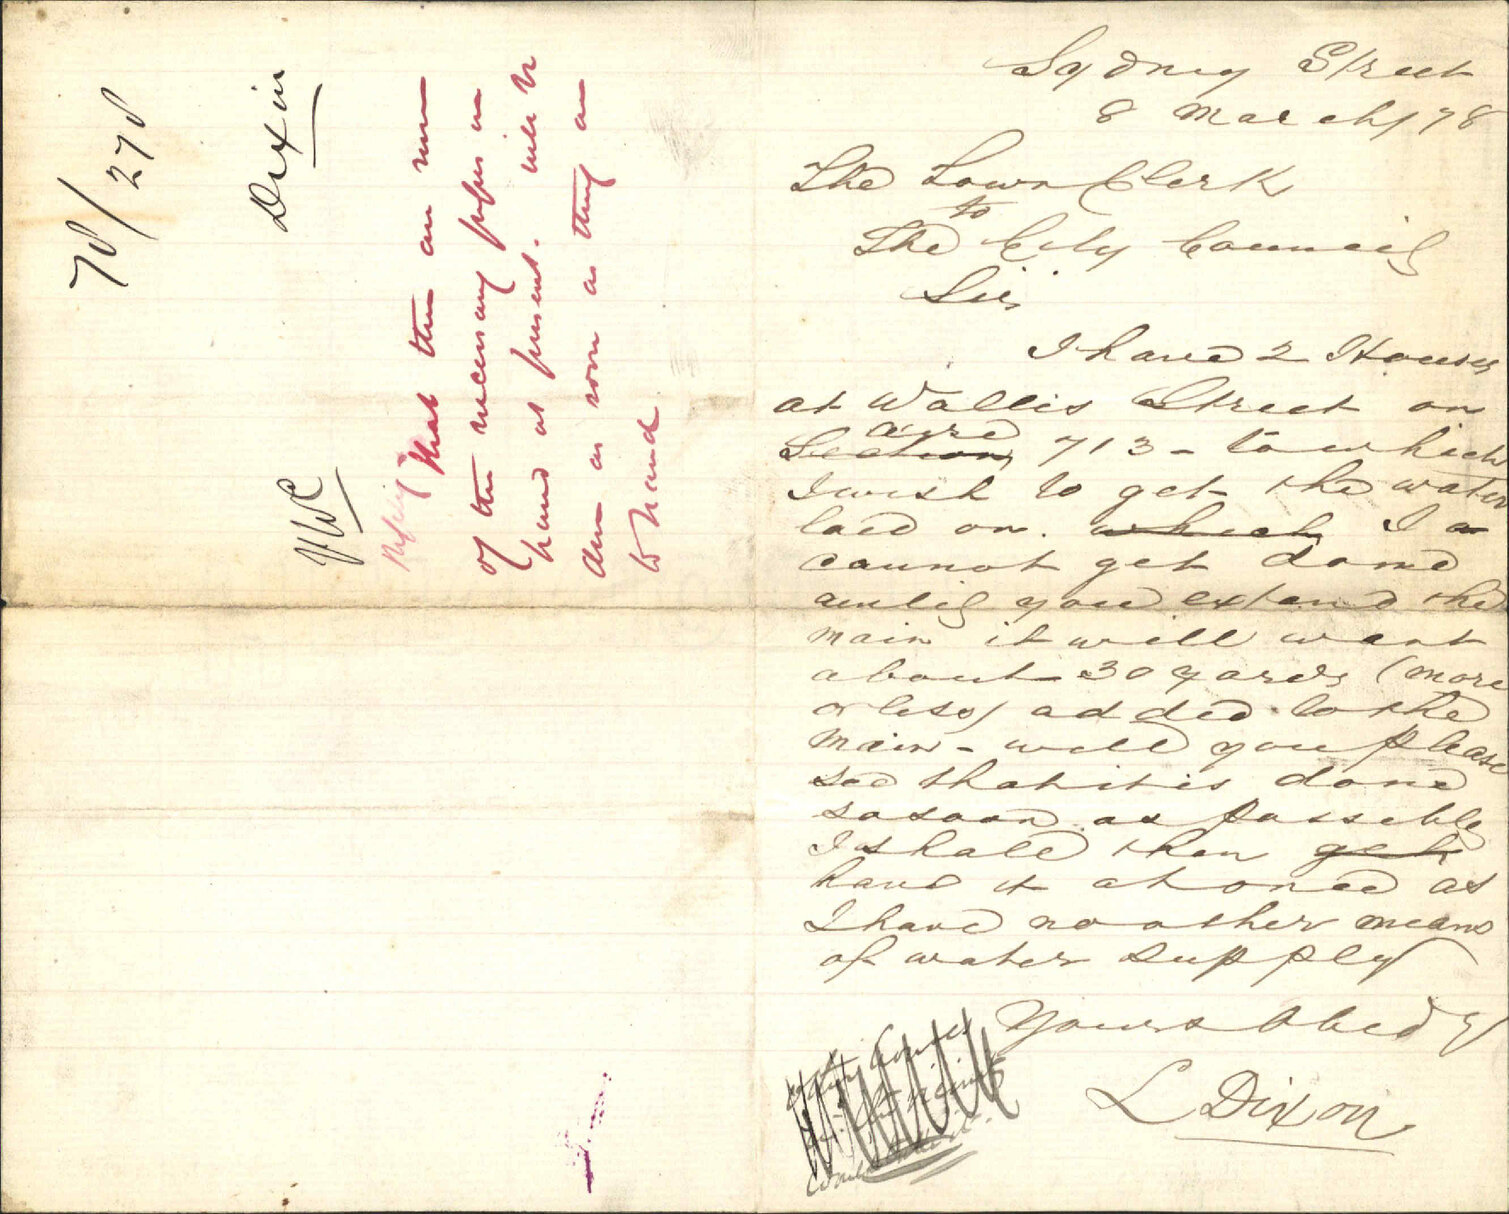 78/278
Dixon
WWC
Reply
That there are none
of the necessary pipes on
hand at present. will be
done as soon as they are
to hand
Sydney Street
8 March/78
The Town Clerk
to
The City Council
Sir,
I have 2 Houses
at Wallis Street on
acre
Section 713 - to which
I wish to get the water
laid on. which I a
cannot get done
until you extend the
main it will want
about 30 yards (more
or less) added to the
main - will you please
see that it is done
so soon as possible
I shall then get
have it at once as
I have no other means
of water supply
Yours Obed
L Dixon